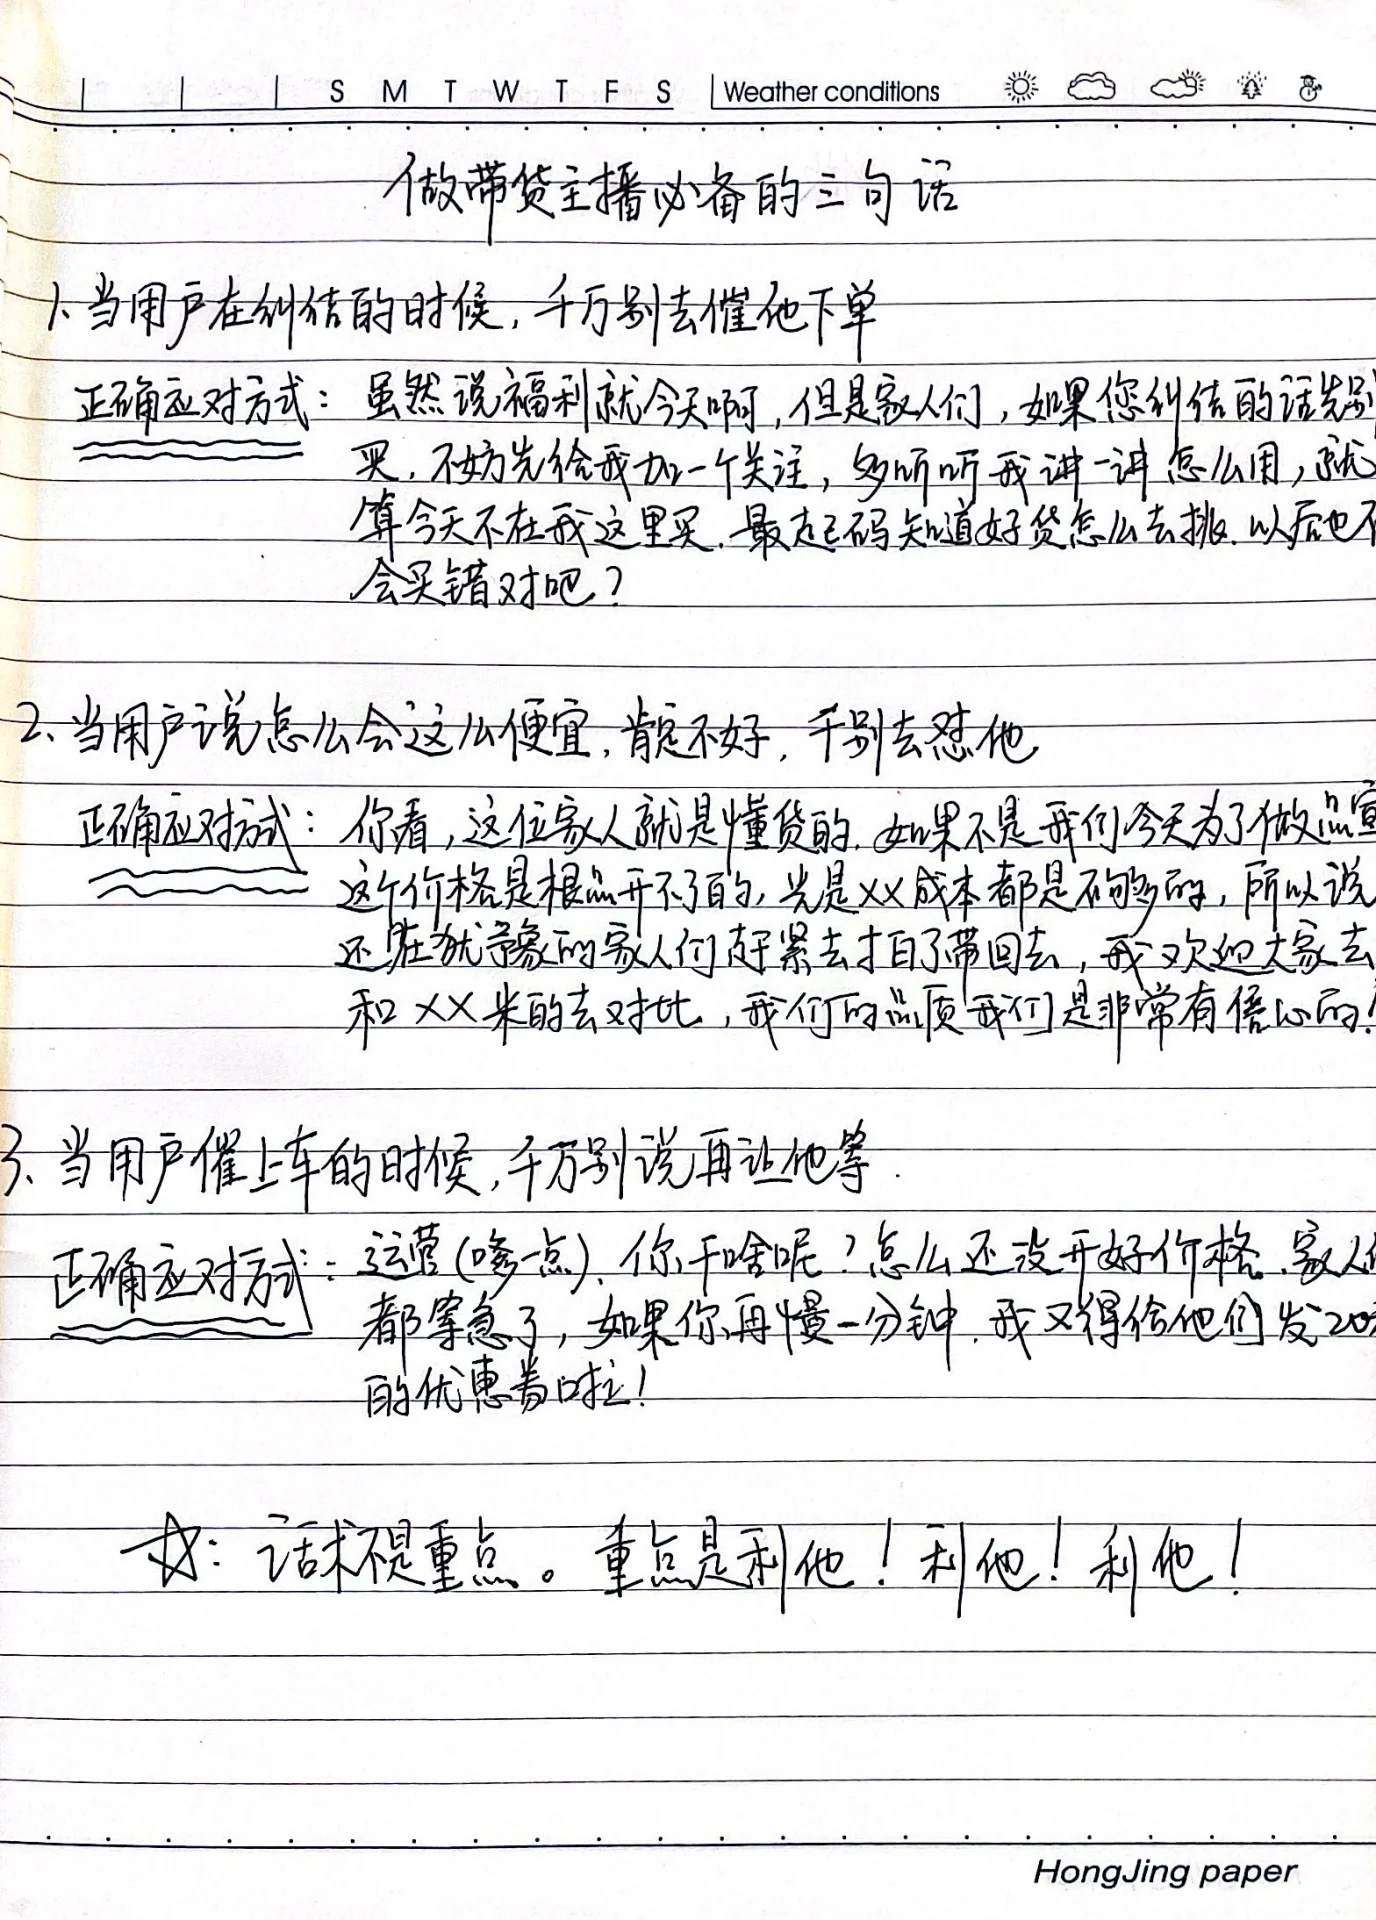 S M T W T F S Weather conditions
做带货主播必备的三句话
1、当用户在纠结的时候，千万别去催他下单
正确应对方式：虽然说福利就今天啊，但是家人们，如果您纠结的话先别
买，不妨先给我加一个关注，多听听我讲一讲怎么用，就
算今天不在我这里买，最起码知道好货怎么去挑，以后也不
会买错对吧？
2、当用户说怎么会这么便宜，肯定不好，千别去怼他
正确应对方式：你看，这位家人就是懂货的，如果不是我们今天为了做品宣
这个价格是根本开不了的，光是XX成本都是不够的，所以说
还在犹豫的家人们赶紧去拍了带回去，我欢迎大家去
和XX米的去对比，我们的品质我们是非常有信心的！
3、当用户催上车的时候，千万别说再让他等．
正确应对方式：运营(嗲一点)，你干啥呢？怎么还没开好价格，家人们
都等急了，如果你再慢一分钟，我又得给他们发20
的优惠券啦！
☆：话术不是重点。重点是利他！利他！利他！
HongJing paper